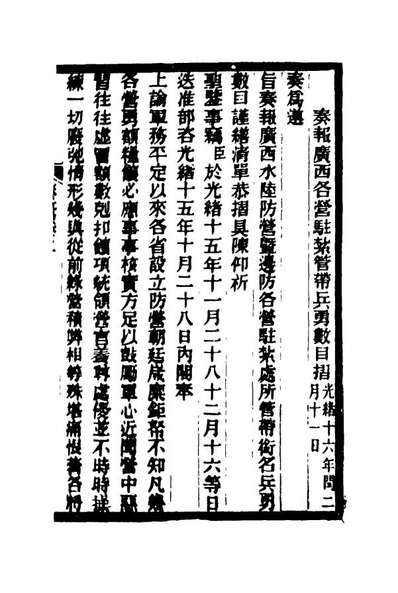 奏報廣西各營駐紮管帶兵勇數目摺光緒十六年閏二月十一日
奏爲遵
旨奏報廣西水陸防營暨邊防各營駐紮處所管帶銜名兵勇
數目謹繕清單恭摺具陳仰祈
聖鑒事竊臣於光緒十五年十一月二十八十二月十六等日
迭准部咨光緒十五年十月二十八日內閣奉
上諭軍務平定以來各省設立防營朝廷歲糜鉅帑不知凡幾
各營勇額糧餉必應事事核實方足以鼓勵軍心近聞營中惡
習往往虛冒額數剋扣餉項統領營官養尊處優並不時時操
練一切廢弛情形幾與從前綠營積弊相等殊堪痛恨著各將